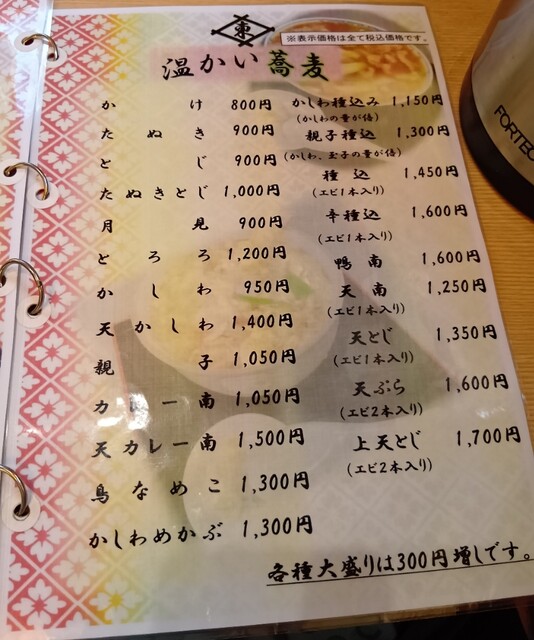 東
※表示価格は全て税込価格です。
温かい蕎麦
かけ 800円
たぬき 900円
とじ 900円
たぬきとじ 1,000円
月見 900円
とろろ 1,200円
かしわ 950円
天かしわ 1,400円
親子 1,050円
カレー南 1,050円
天カレー南 1,500円
鳥なめこ 1,300円
かしわめかぶ 1,300円
かしわ種込み 1,150円
(かしわの量が倍)
親子種込 1,300円
(かしわ、玉子の量が倍)
種込 1,450円
(エビ1本入り)
辛種込 1,600円
(エビ1本入り)
鴨南 1,600円
天南 1,250円
(エビ1本入り)
天とじ 1,350円
(エビ1本入り)
天ぷら 1,600円
(エビ2本入り)
上天とじ 1,700円
(エビ2本入り)
各種大盛りは300円増しです。
FORTEC